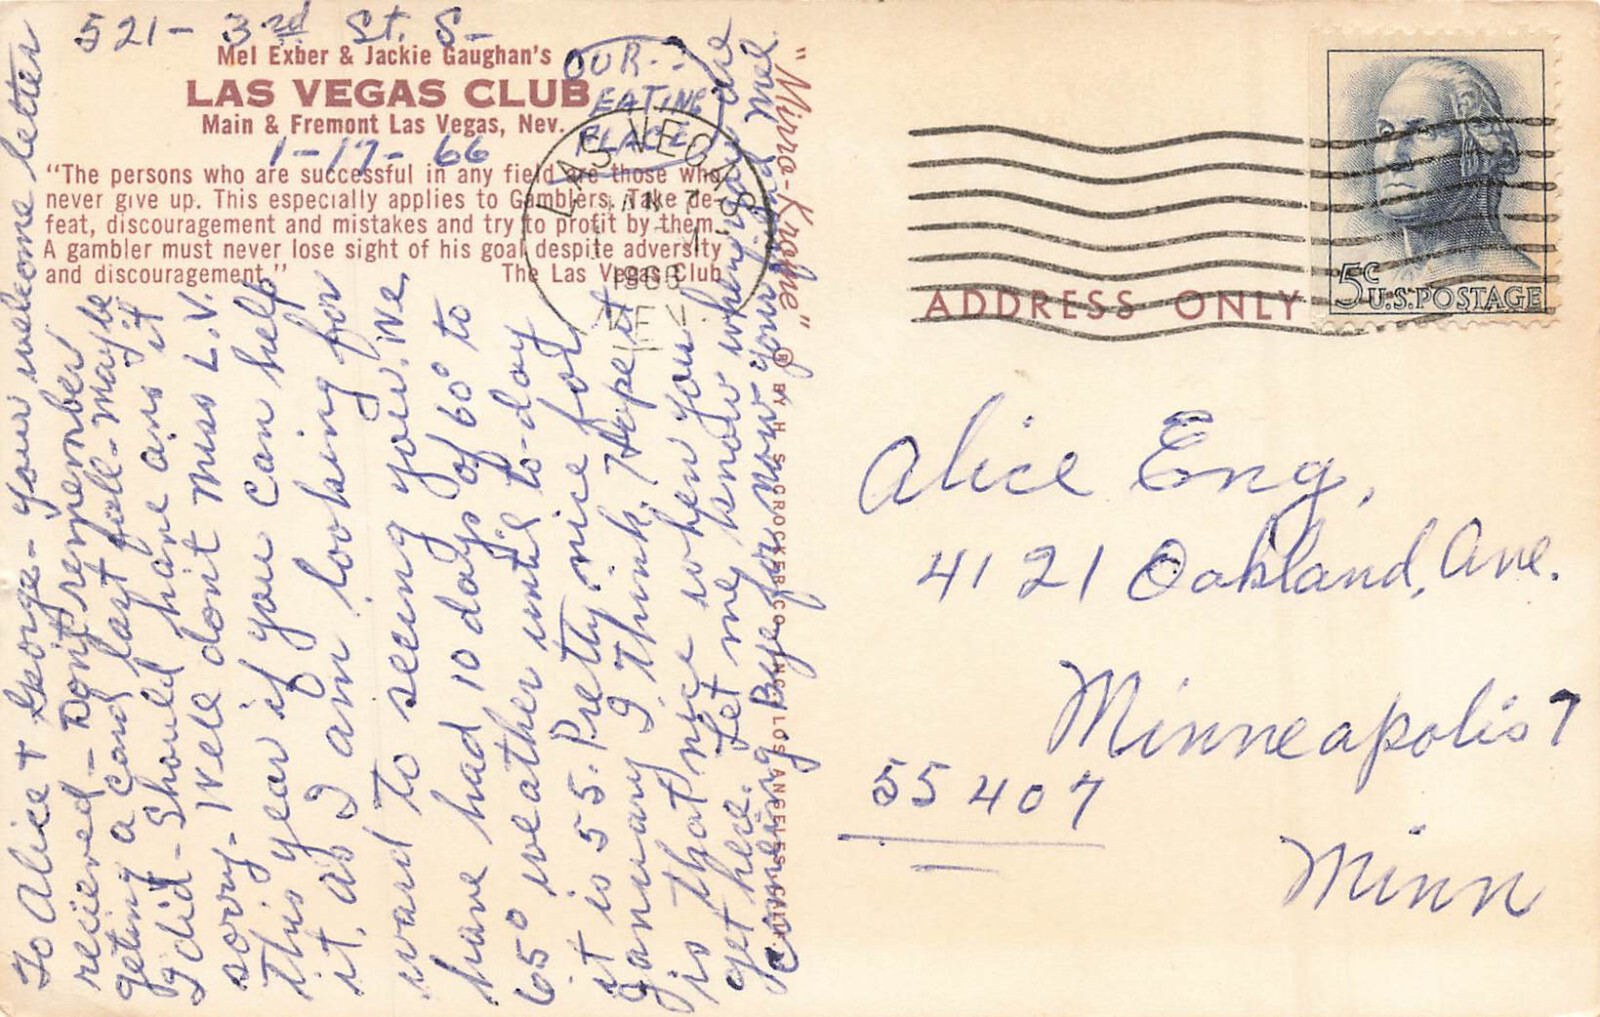 521- 3rd St. S-
Mel Exber & Jackie Gaughan's
LAS VEGAS CLUB
Main & Fremont Las Vegas, Nev.
OUR-
EATING
PLACE
1-17-66
"The persons who are successful in any field are those who
never give up. This especially applies to Gamblers. Take de-
feat, discouragement and mistakes and try to profit by them.
A gambler must never lose sight of his goal despite adversity
and discouragement."
The Las Vegas Club
LAS VEGAS
JAN 17
1966
NEV.
To Alice + George- your welcome letter
recieved- Don't remember
geting a card last fall- maybe
I did- Should have ans it
sorry- Well don't miss L.V.
this year if you can help
it, as I am looking for
ward to seeing you. We
have had 10 days of 60° to
65° weather until to-day
it is 55. Pretty nice for
January I think. Hope it
is that nice when you
get here. Let me know when you are
coming Bye for now your friend Mel.
"Mirro-Krome" ® BY H. S. CROCKER CO., INC., LOS ANGELES, CALIF.
5c
U.S. POSTAGE
ADDRESS ONLY
Alice Eng,
4121 Oakland, Ave.
Minneapolis 7
55407
Minn